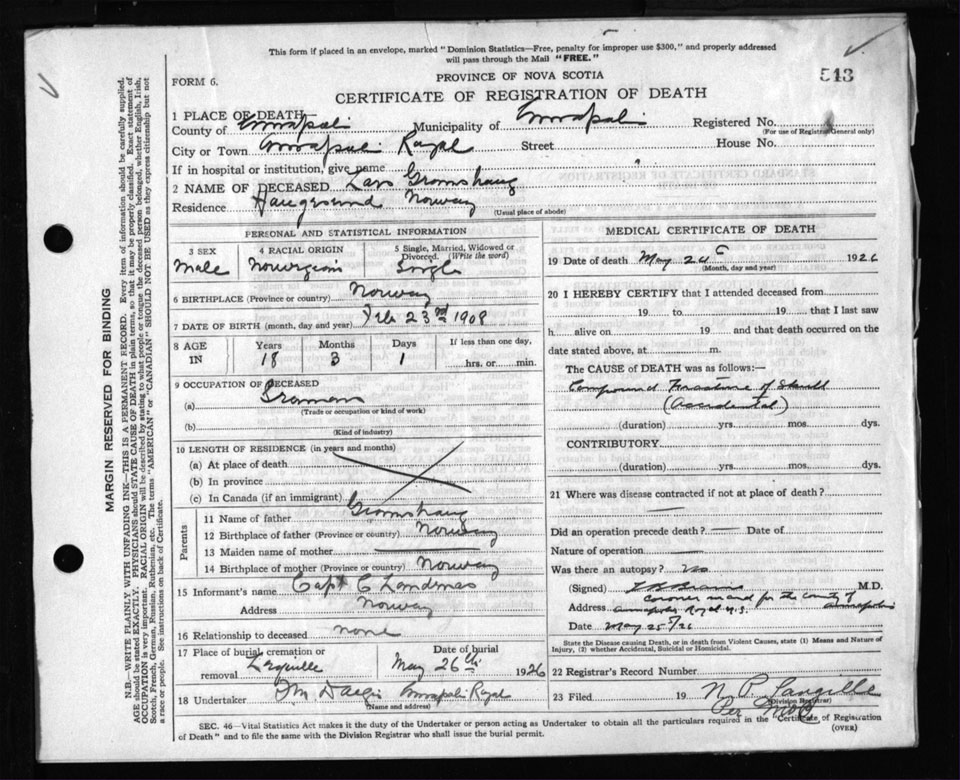 This form if placed in an envelope, marked "Dominion Statistics—Free, penalty for improper use $300," and properly addressed
will pass through the Mail "FREE."
PROVINCE OF NOVA SCOTIA
513
FORM 6.
CERTIFICATE OF REGISTRATION OF DEATH
1 PLACE OF DEATH
County of Annapolis Municipality of Annapolis Registered No.
(For use of Registrar General only)
City or Town Annapolis Royal Street House No.
If in hospital or institution, give name
2 NAME OF DECEASED Lars Gromshaug
Residence Haugesund Norway
(Usual place of abode)
PERSONAL AND STATISTICAL INFORMATION
3 SEX 4 RACIAL ORIGIN 5 Single, Married, Widowed or
Divorced. (Write the word)
Male Norwegian Single
6 BIRTHPLACE (Province or country) Norway
7 DATE OF BIRTH (month, day and year) Feb 23rd 1908
8 AGE Years Months Days If less than one day,
IN 18 3 1 hrs. or min.
9 OCCUPATION OF DECEASED
(a)
(Trade or occupation or kind of work)
(b)
(Kind of industry)
10 LENGTH OF RESIDENCE (in years and months)
(a) At place of death
(b) In province
(c) In Canada (if an immigrant)
Parents
11 Name of father Gromshaug
12 Birthplace of father (Province or country) Norway
13 Maiden name of mother
14 Birthplace of mother (Province or country) Norway
15 Informant's name Capt C Landmas
Address Norway
16 Relationship to deceased none
17 Place of burial, cremation or removal Lequille
Date of burial May 26th 1926
18 Undertaker Annapolis Royal
(Name and address)
MEDICAL CERTIFICATE OF DEATH
19 Date of death May 24th 1926
(Month, day and year)
20 I HEREBY CERTIFY that I attended deceased from
19 to 19 that I last saw
h alive on 19 and that death occurred on
date stated above, at m.
The CAUSE of DEATH was as follows:—
Compound Fracture of Skull
(Accidental)
(duration) yrs. mos. dys.
CONTRIBUTORY
(duration) yrs. mos. dys.
21 Where was disease contracted if not at place of death?
Did an operation precede death? Date of
Nature of operation
Was there an autopsy? No
(Signed) M.D.
Coroner in and for the County of
Address Annapolis Royal N.S. Annapolis
Date May 25th/26
State the Disease causing Death, or in death from Violent Causes, state (1) Means and Nature of
Injury, (2) whether Accidental, Suicidal or Homicidal.
22 Registrar's Record Number
23 Filed 19 N. P. Langille
(Division Registrar)
Per
SEC. 46—Vital Statistics Act makes it the duty of the Undertaker or person acting as Undertaker to obtain all the particulars required in the "Certificate of Registration
of Death" and to file the same with the Division Registrar who shall issue the burial permit.
(OVER)
MARGIN RESERVED FOR BINDING
N.B.—WRITE PLAINLY WITH UNFADING INK—THIS IS A PERMANENT RECORD. Every item of information should be carefully supplied.
AGE should be stated EXACTLY. PHYSICIANS should STATE CAUSE OF DEATH in plain terms, so that it may be properly classified. Exact statement of
OCCUPATION is very important. RACIAL ORIGIN will be described by stating to what people or tongue the deceased person belonged, whether English, Irish,
Scotch, French, German, Russian, Ruthenian, etc. The terms "AMERICAN" or "CANADIAN" SHOULD NOT BE USED as they express citizenship but not
a race or people. See instructions on back of Certificate.